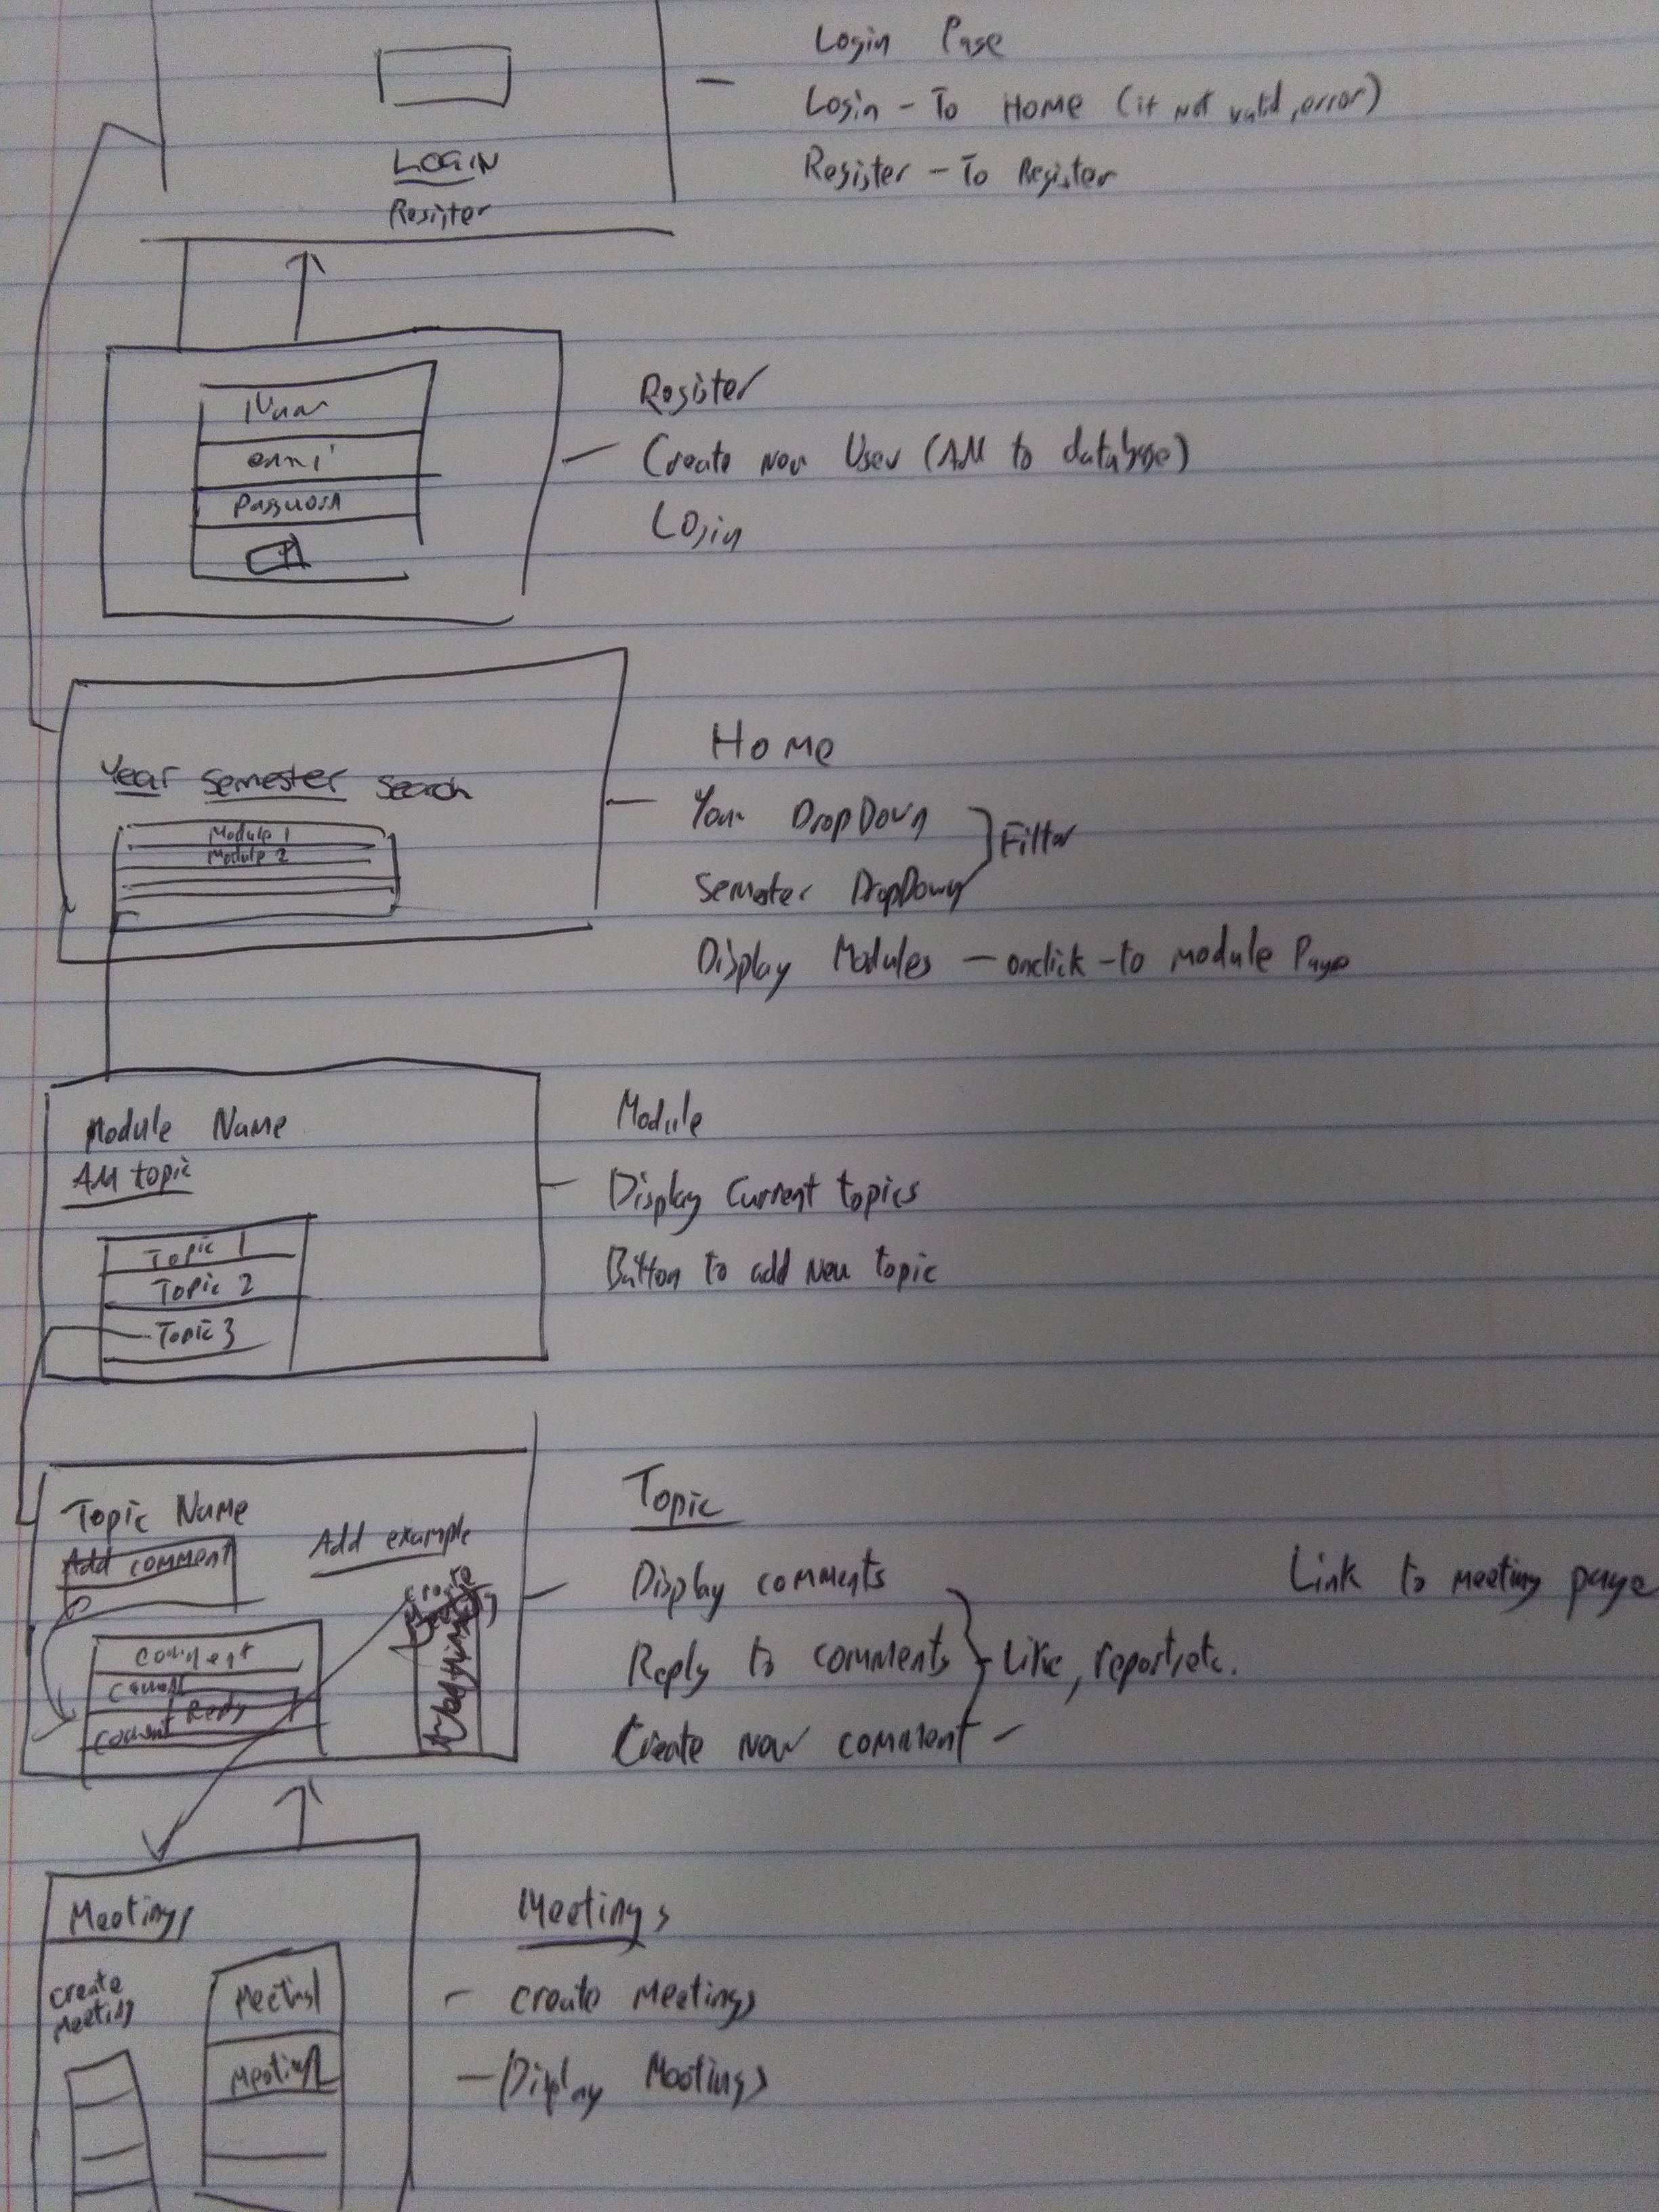 Login Page
Login - To Home (if not valid, error)
Register - To Register
LOGIN
Register
Name
email
Password
Register
Create new User (Add to database)
Login
Year Semester Search
Module 1
Module 2
Home
Year DropDown
Semester DropDown
Filter
Display Modules - onclick - to module Page
Module Name
Add topic
Topic 1
Topic 2
Topic 3
Module
Display Current topics
Button to add new topic
Topic Name
Add comment
Add example
Create
Comment
Comment
Reply
Comment
Topic
Display comments
Reply to comments
Create new comment -
Like, report, etc.
Link to meeting page
Meetings
Create
Meeting
Meeting1
Meeting2
Meetings
- Create Meetings
- Display Meetings